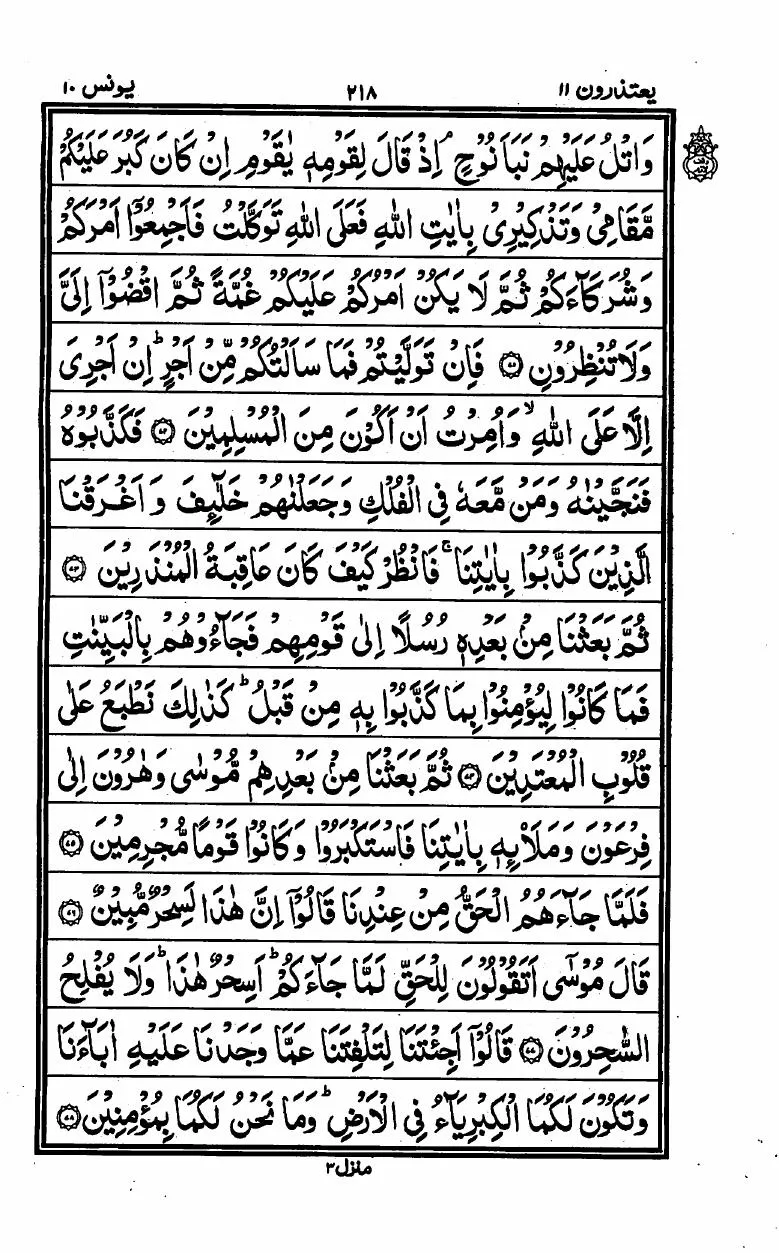 یعتذرون ۱۱ ۲۱۸ یونس ۱۰
وَاتۡلُ عَلَیۡہِمۡ نَبَاَ نُوۡحٍ ۘ اِذۡ قَالَ لِقَوۡمِہٖ یٰقَوۡمِ اِنۡ کَانَ کَبُرَ عَلَیۡکُمۡ
مَّقَامِیۡ وَتَذۡکِیۡرِیۡ بِاٰیٰتِ اللّٰہِ فَعَلَی اللّٰہِ تَوَکَّلۡتُ فَاَجۡمِعُوۡۤا اَمۡرَکُمۡ
وَشُرَکَآءَکُمۡ ثُمَّ لَا یَکُنۡ اَمۡرُکُمۡ عَلَیۡکُمۡ غُمَّۃً ثُمَّ اقۡضُوۡۤا اِلَیَّ
وَلَا تُنۡظِرُوۡنِ ﴿۷۱﴾ فَاِنۡ تَوَلَّیۡتُمۡ فَمَا سَاَلۡتُکُمۡ مِّنۡ اَجۡرٍ ؕ اِنۡ اَجۡرِیَ
اِلَّا عَلَی اللّٰہِ ۙ وَاُمِرۡتُ اَنۡ اَکُوۡنَ مِنَ الۡمُسۡلِمِیۡنَ ﴿۷۲﴾ فَکَذَّبُوۡہُ
فَنَجَّیۡنٰہُ وَمَنۡ مَّعَہٗ فِی الۡفُلۡکِ وَجَعَلۡنٰہُمۡ خَلٰٓئِفَ وَاَغۡرَقۡنَا
الَّذِیۡنَ کَذَّبُوۡا بِاٰیٰتِنَا ۚ فَانۡظُرۡ کَیۡفَ کَانَ عَاقِبَۃُ الۡمُنۡذَرِیۡنَ ﴿۷۳﴾
ثُمَّ بَعَثۡنَا مِنۡۢ بَعۡدِہٖ رُسُلًا اِلٰی قَوۡمِہِمۡ فَجَآءُوۡہُمۡ بِالۡبَیِّنٰتِ
فَمَا کَانُوۡا لِیُؤۡمِنُوۡا بِمَا کَذَّبُوۡا بِہٖ مِنۡ قَبۡلُ ؕ کَذٰلِکَ نَطۡبَعُ عَلٰی
قُلُوۡبِ الۡمُعۡتَدِیۡنَ ﴿۷۴﴾ ثُمَّ بَعَثۡنَا مِنۡۢ بَعۡدِہِمۡ مُّوۡسٰی وَہٰرُوۡنَ اِلٰی
فِرۡعَوۡنَ وَمَلَا۠ئِہٖ بِاٰیٰتِنَا فَاسۡتَکۡبَرُوۡا وَکَانُوۡا قَوۡمًا مُّجۡرِمِیۡنَ ﴿۷۵﴾
فَلَمَّا جَآءَہُمُ الۡحَقُّ مِنۡ عِنۡدِنَا قَالُوۡۤا اِنَّ ہٰذَا لَسِحۡرٌ مُّبِیۡنٌ ﴿۷۶﴾
قَالَ مُوۡسٰۤی اَتَقُوۡلُوۡنَ لِلۡحَقِّ لَمَّا جَآءَکُمۡ ؕ اَسِحۡرٌ ہٰذَا ؕ وَلَا یُفۡلِحُ
السّٰحِرُوۡنَ ﴿۷۷﴾ قَالُوۡۤا اَجِئۡتَنَا لِتَلۡفِتَنَا عَمَّا وَجَدۡنَا عَلَیۡہِ اٰبَآءَنَا
وَتَکُوۡنَ لَکُمَا الۡکِبۡرِیَآءُ فِی الۡاَرۡضِ ؕ وَمَا نَحۡنُ لَکُمَا بِمُؤۡمِنِیۡنَ ﴿۷۸﴾
منزل ۳